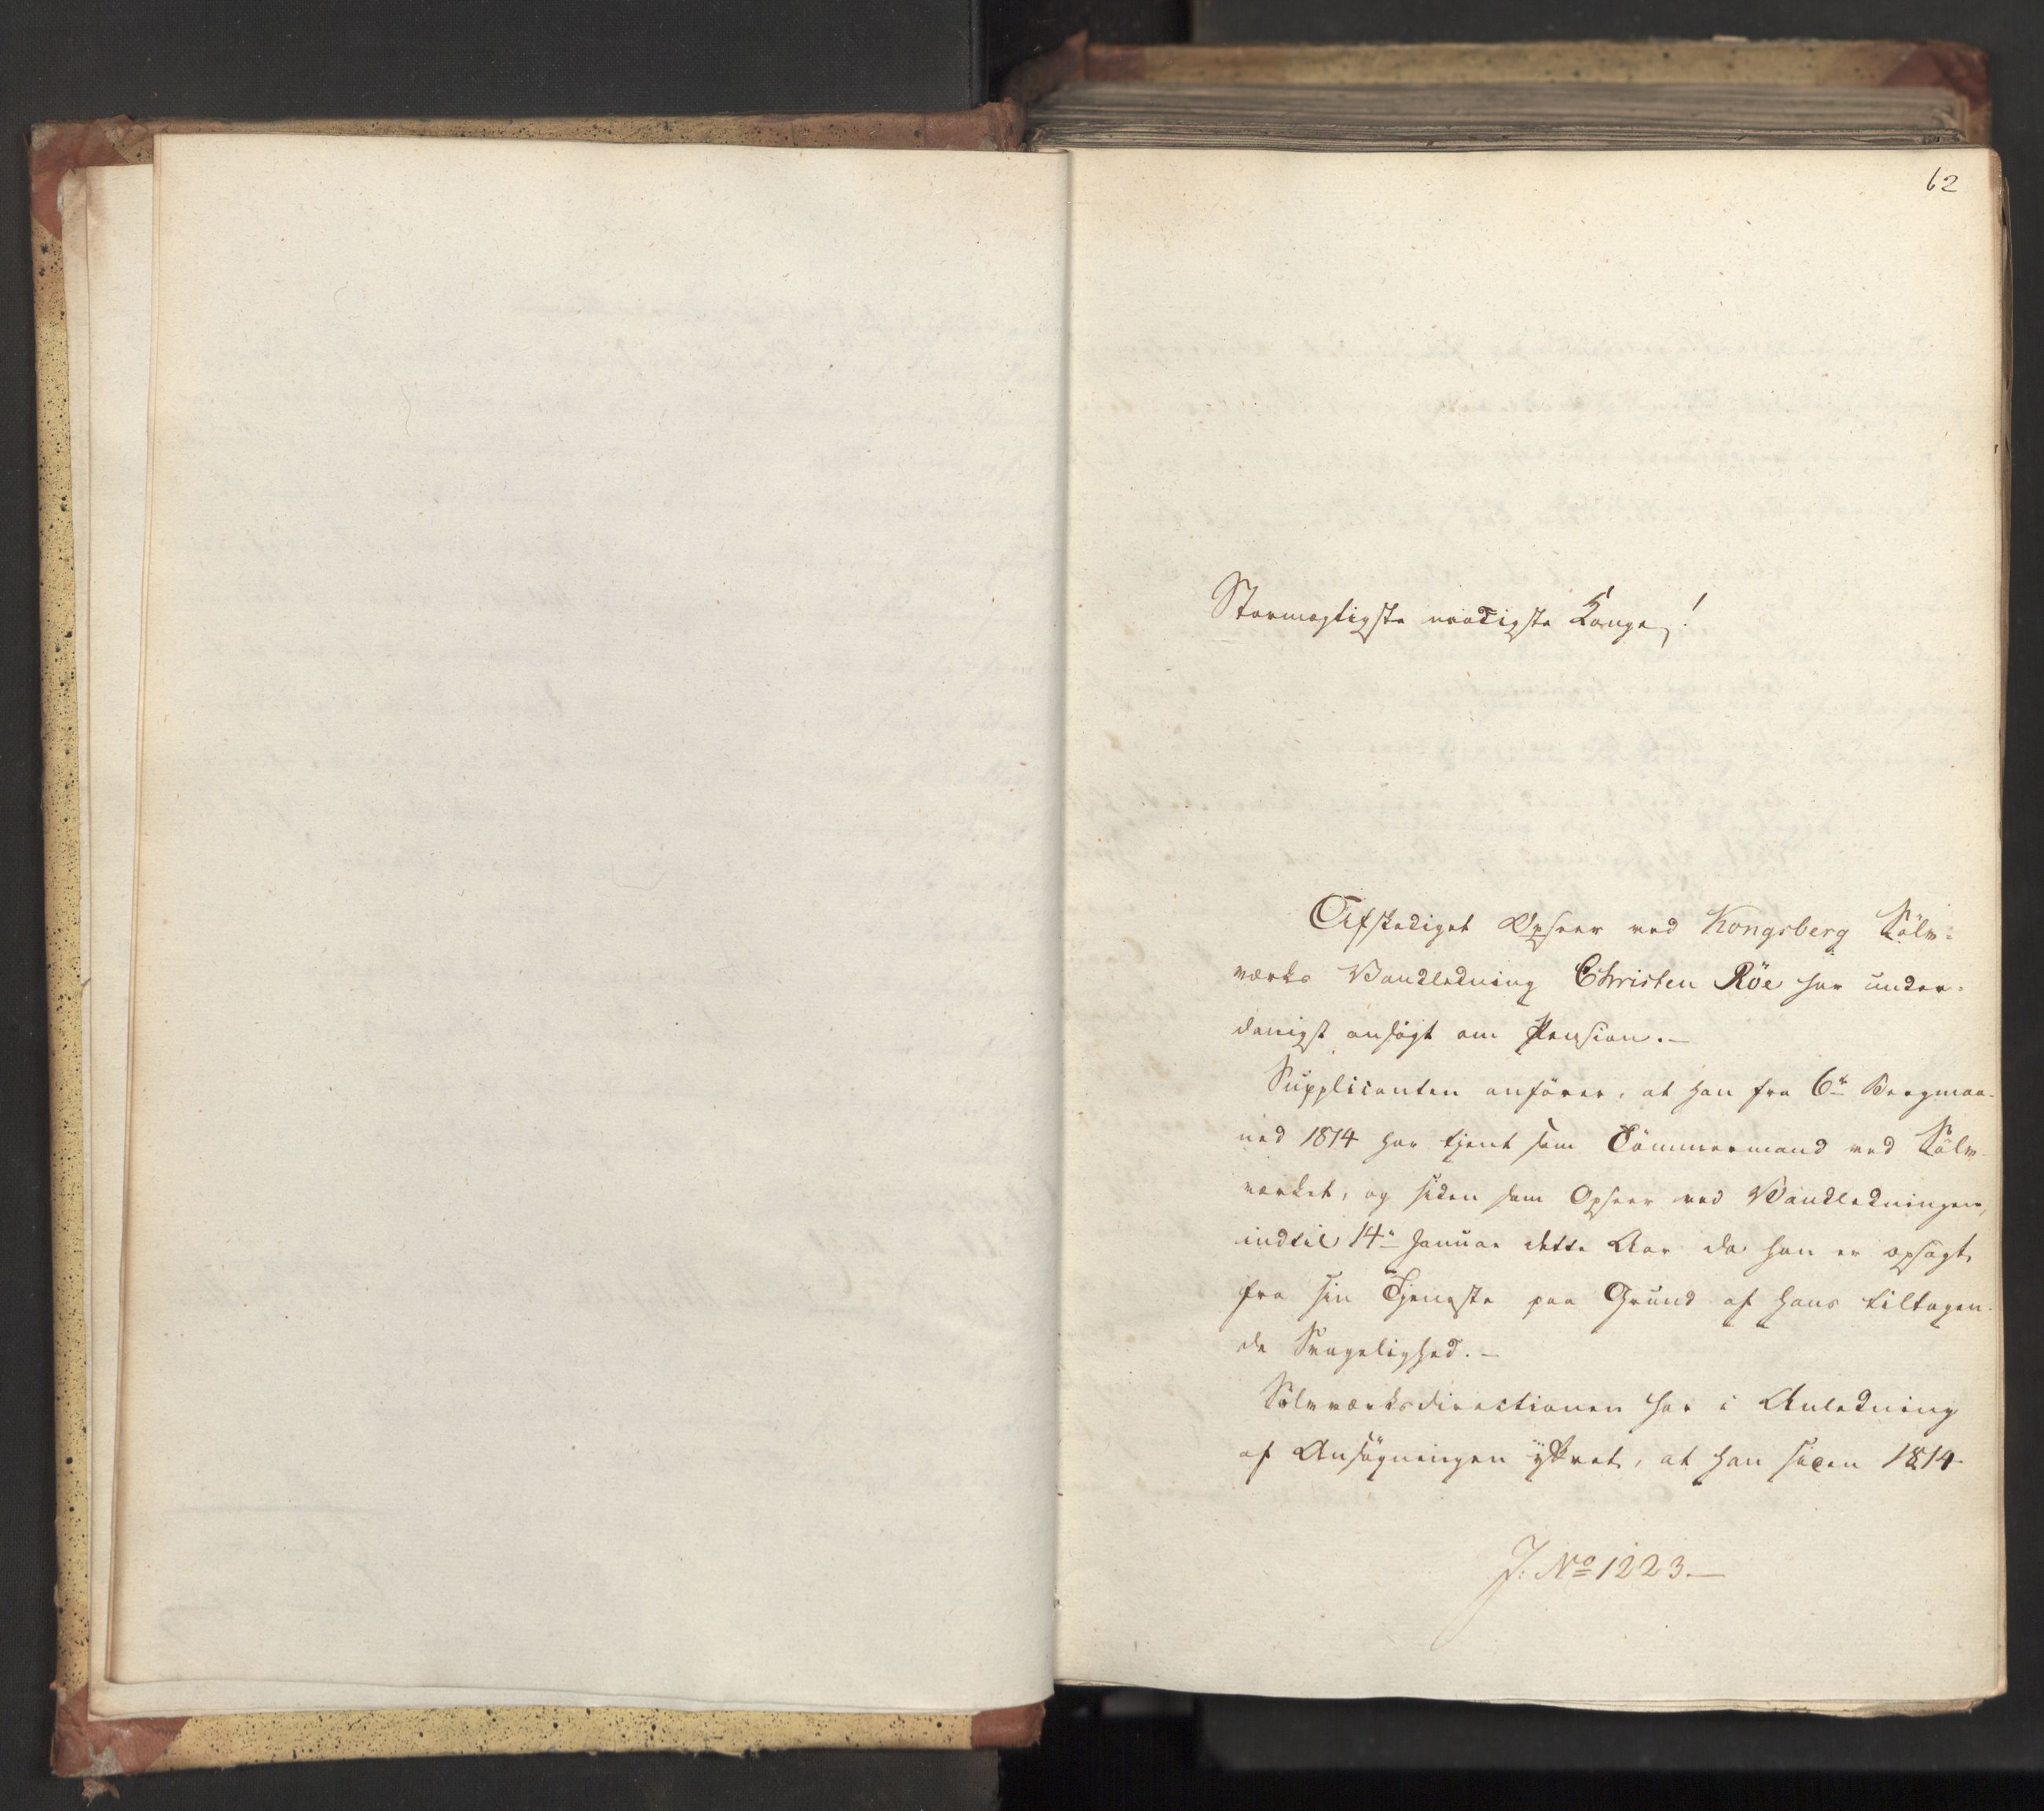 62
Stormægtigste naadigste Konge!
Afskediget Opseer ved Kongsberg Sölv-
værks Vandledning Christen Röe har under-
danigst ansögt om Pension.-
Supplicanten anförer, at han fra 6te Bergmaa-
ned 1814 har tjent som Tömmermand ved Sölv-
værket, og siden som Opseer ved Vandledningen,
indtil 14de Januar dette Aar da han er opsagt
fra sin Tjeneste paa Grund af hans tiltagen-
de Svagelighed.-
Sölvværksdirectionen har i Anledning
af Ansögningen yttret, at han siden 1814
J. No 1223.-